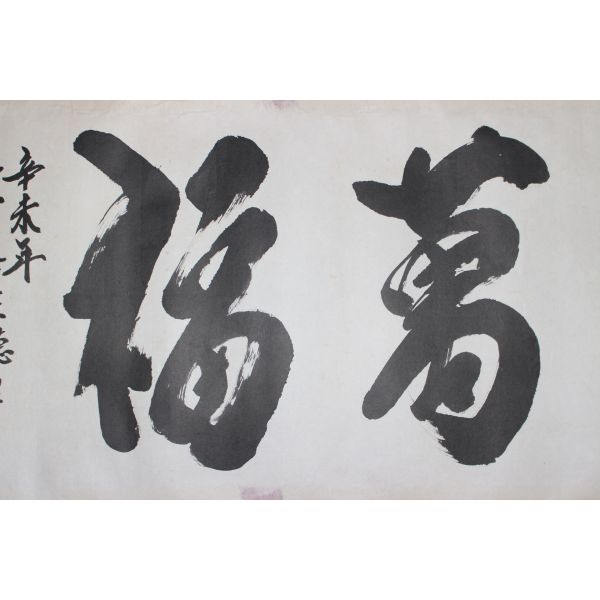 萬福
辛未年